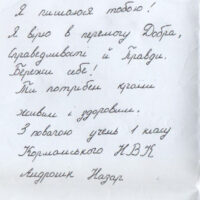 Я пишаюся тобою!
Я вірю в перемогу Добра,
Справедливості й Правди.
Бережи себе!
Ти потрібен країні
живим і здоровим.
З повагою учень 1 класу
НВК
Назар